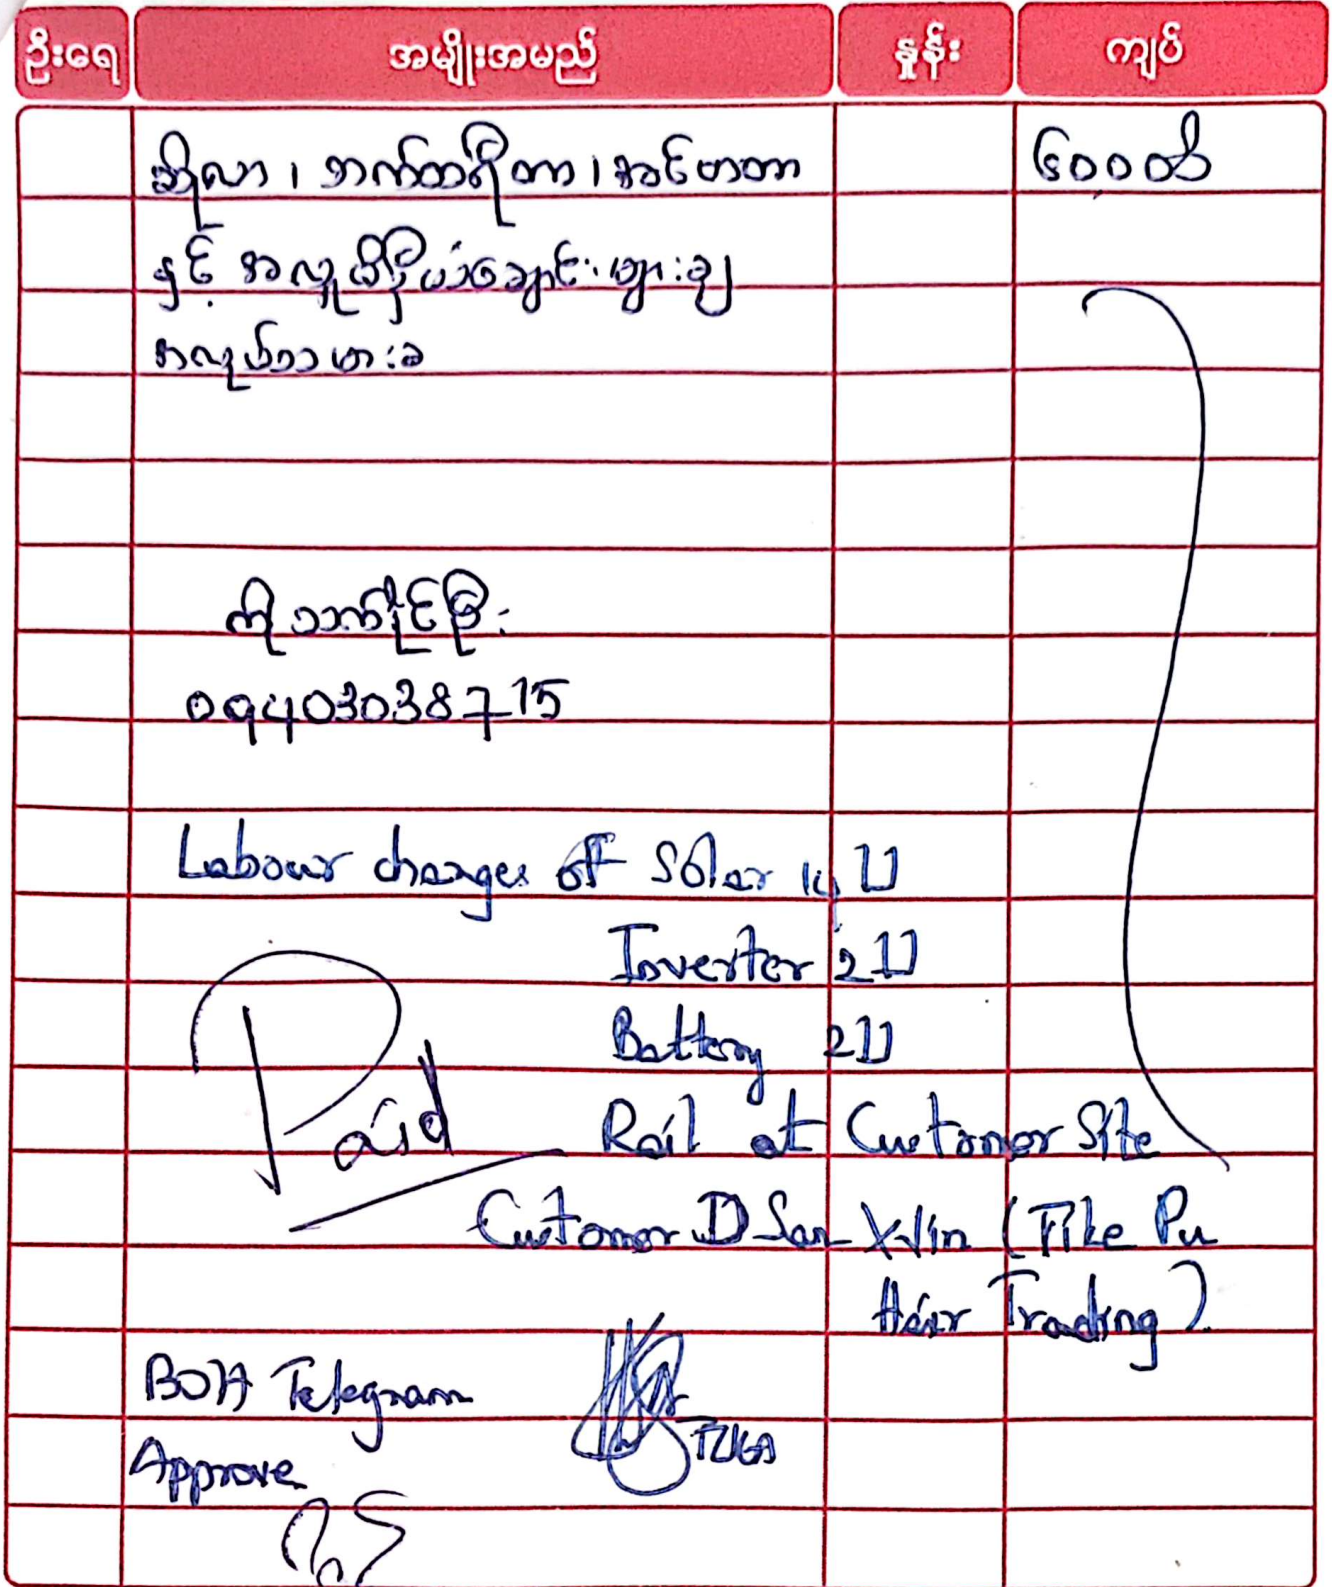 ဦးရေ အမျိုးအမည် နှုန်း ကျပ်
ဆိုလာ၊ ဘက်ထရီတာ၊ အင်ဗာတာ ၆၀၀ထိ
နှင့် အလူမီနီယံချောင်းများချ
အလုပ်သမားခ
ကို ဖြိုး
09403038715
Labour charges of Solar 14 U
Inverter 2 U
Battery 2 U
Rail at Customer Site
Paid
Customer D San Win (Tike Pu
Hair Trading)
BOH Telegram
Approve